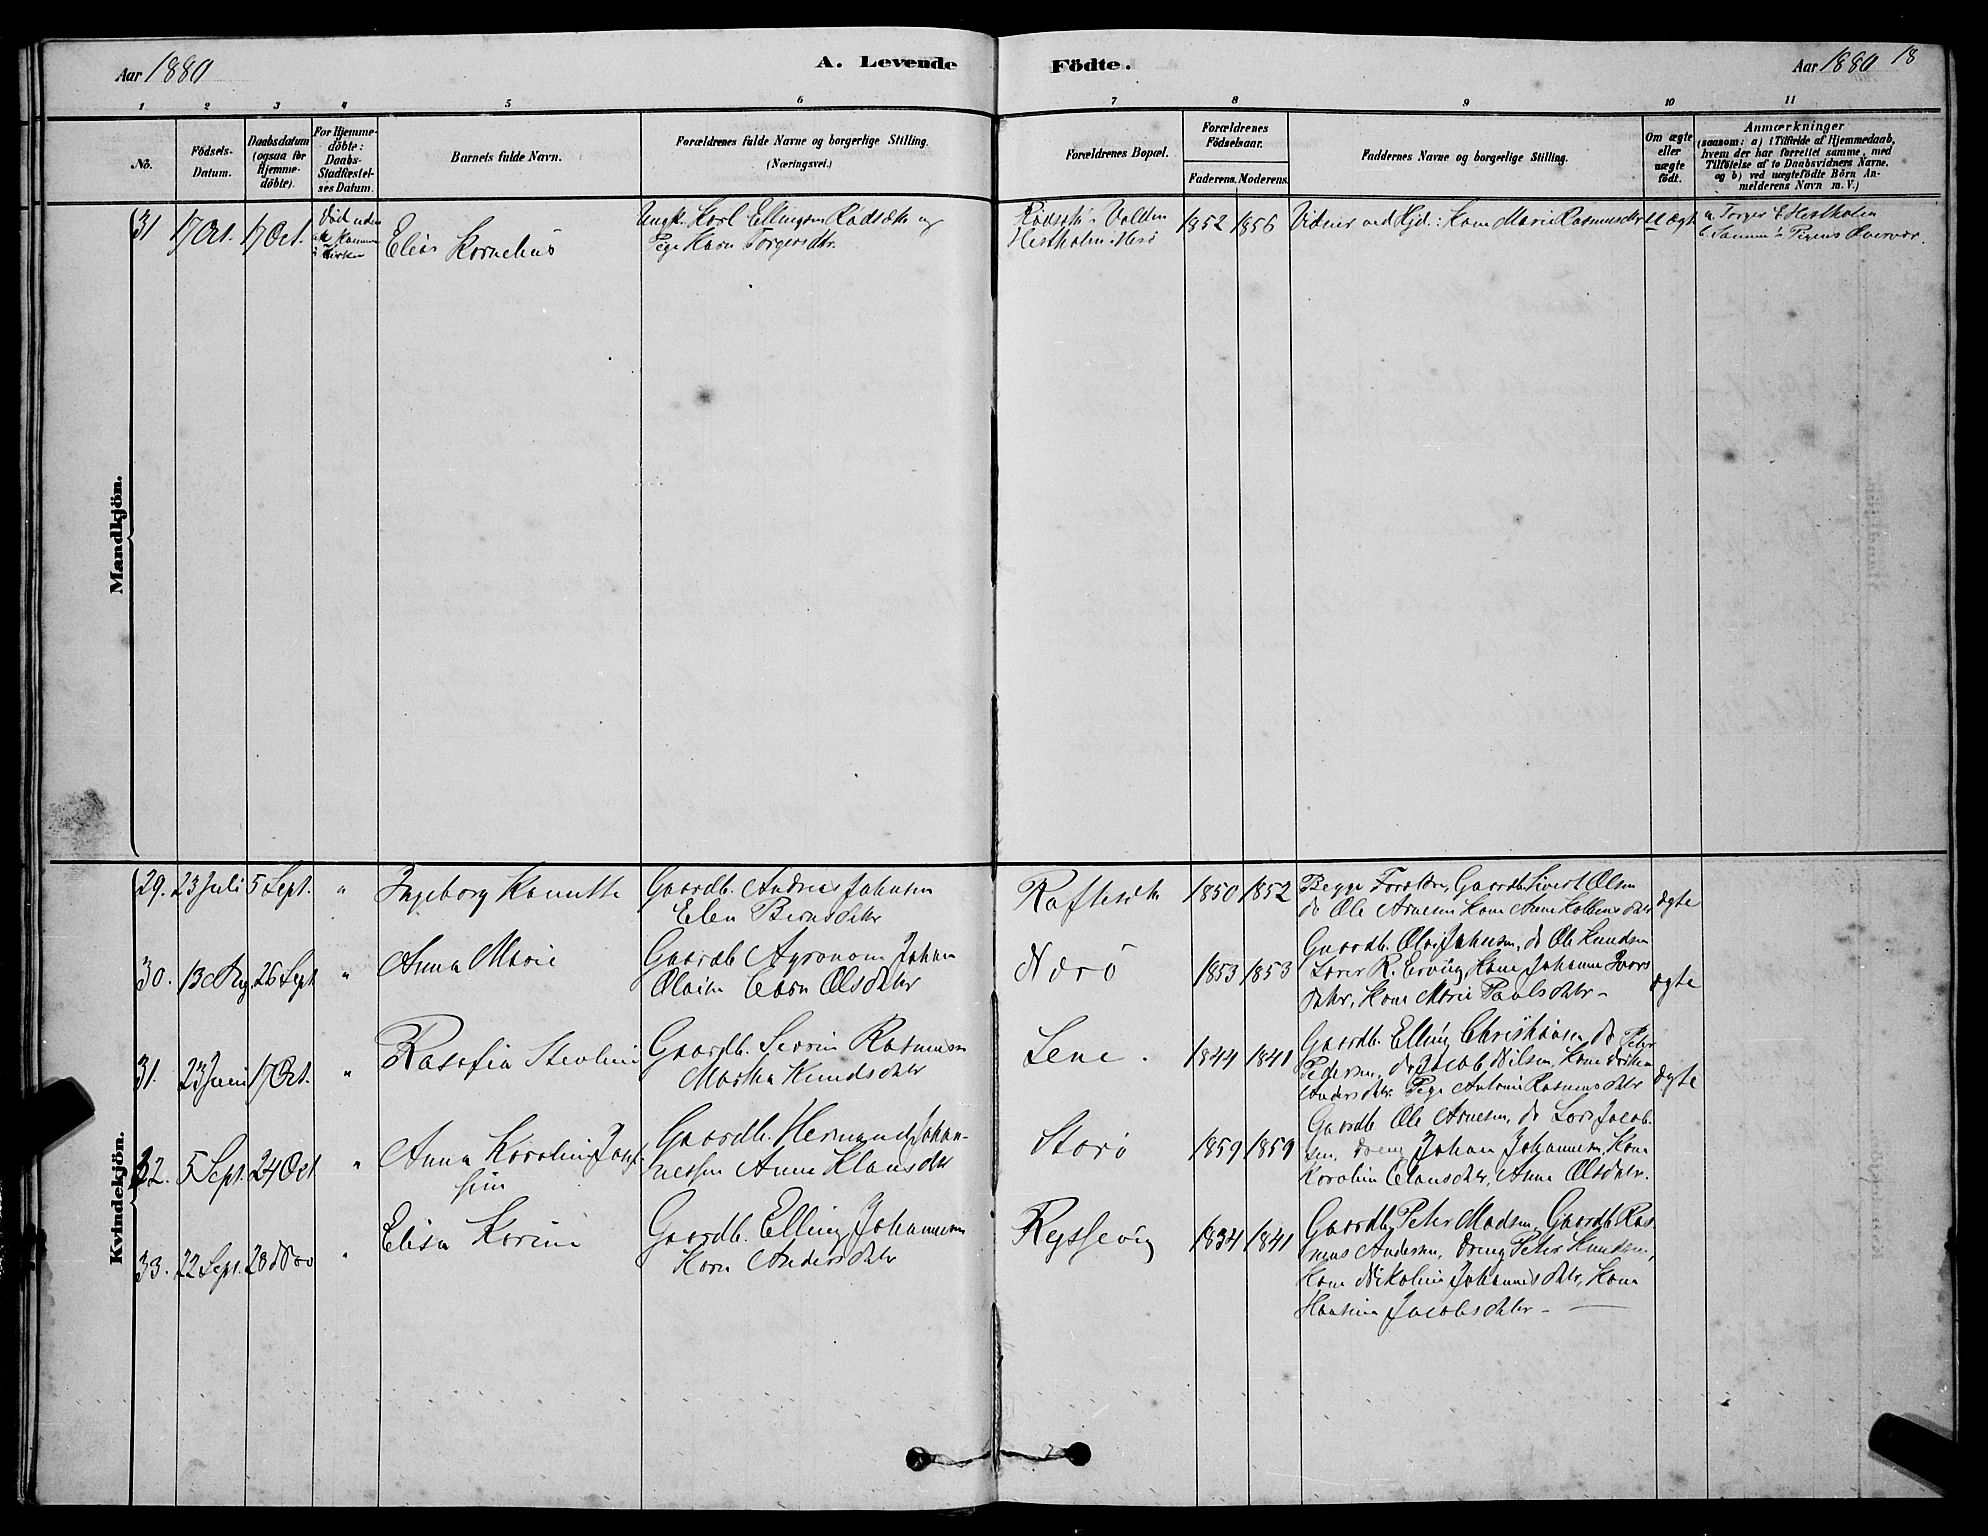 Aar 1880
A. Levende
Födte.
Aar 1880
18
1
2
3
4
5
6
7
8
9
10
11
No.
Födsels-
Datum.
Daabsdatum
(ogsaa for
Hjemme-
döbte).
For Hjemme-
döbte:
Daabs-
Stadfæstel-
ses Datum.
Barnets fulde Navn.
Forældrenes fulde Navne og borgerlige Stilling.
(Næringsvei.)
Forældrenes Bopæl.
Forældrenes
Födselsaar.
Faderens. Moderens.
Faddernes Navne og borgerlige Stilling.
Om ægte
eller
uægte
födt.
Anmærkninger
(saasom: a) i Tilfælde af Hjemmedaab,
hvem der har forrettet samme, med
Tilföielse af to Daabsvidners Navne,
og b) ved uægtefödte Börn An-
melderens Navn m. V.)
Mandkjön.
31
17 Oct.
17 Oct.
Död uden
at komme
i Kirken
Elias Kornelius
Ungk. Karl Ellingsen Rödsæth og
Pige Karn Torgersdtr.
Rödsæth i Volden
Hestholm i Herö
1852
1856
Vidner ved Hjd.: Kone Marie Rasmusdtr
uægt
a. Torger E Hestholm
b. Samme
Kvindekjön.
29.
23 Juli
5 Sept.
"
Ingeborg Kanutte
Gaardb. Andreas Johnsen
Elen Berns datter
Raftesæth
1850
1852
Begge Forældre, Gaardb. Sivert Olsen
do Ole Arnesen Kone Anne
ægte
30.
13 Aug
26 Sept
"
Anna Marie
Gaardb. Agronom Johan
Olsdatter
Nærö
1853
1853
Gaardb. Ole Johnsen, do Ole Knudsen
Lærer R. Erviig, Kone Johanne Ivers
datter, Kone Marie Pauls datter -
ægte
31.
23 Juni
17 Oct.
"
Gaardb. Rasmusen
Martha Knuds datter
Lene.
1844
1841
Gaardb. Elling Christiansen do Peter
Pedersen, do Jacob Nilsen, Kone
Anders datter Pige Antonie Rasmus datter
ægte
32.
5 Sept.
24 Oct
"
Anna Karoline Josef-
fine
Gaardb. Hermund Johan-
nessen Anne Klaus dtr
Storö
1859
1859
Gaardb Ole Arnesen, do Lars Jacob-
sen, dreng Johan Johannesen, Kone
Karoline Claus dtr, Anna Ols datr.
33.
22 Sept.
28 Nov
"
Elisa Karine
Gaardb. Elling Johannesen
Karn Anders datter
Rysjevig
1834
1841
Gaardb. Peter Madsen, Gaardb. Ras-
mus Andersen, dreng Peter Knudsen,
Kone Nikoline Johannes datr, Kone
Hansine Jacobs datter -